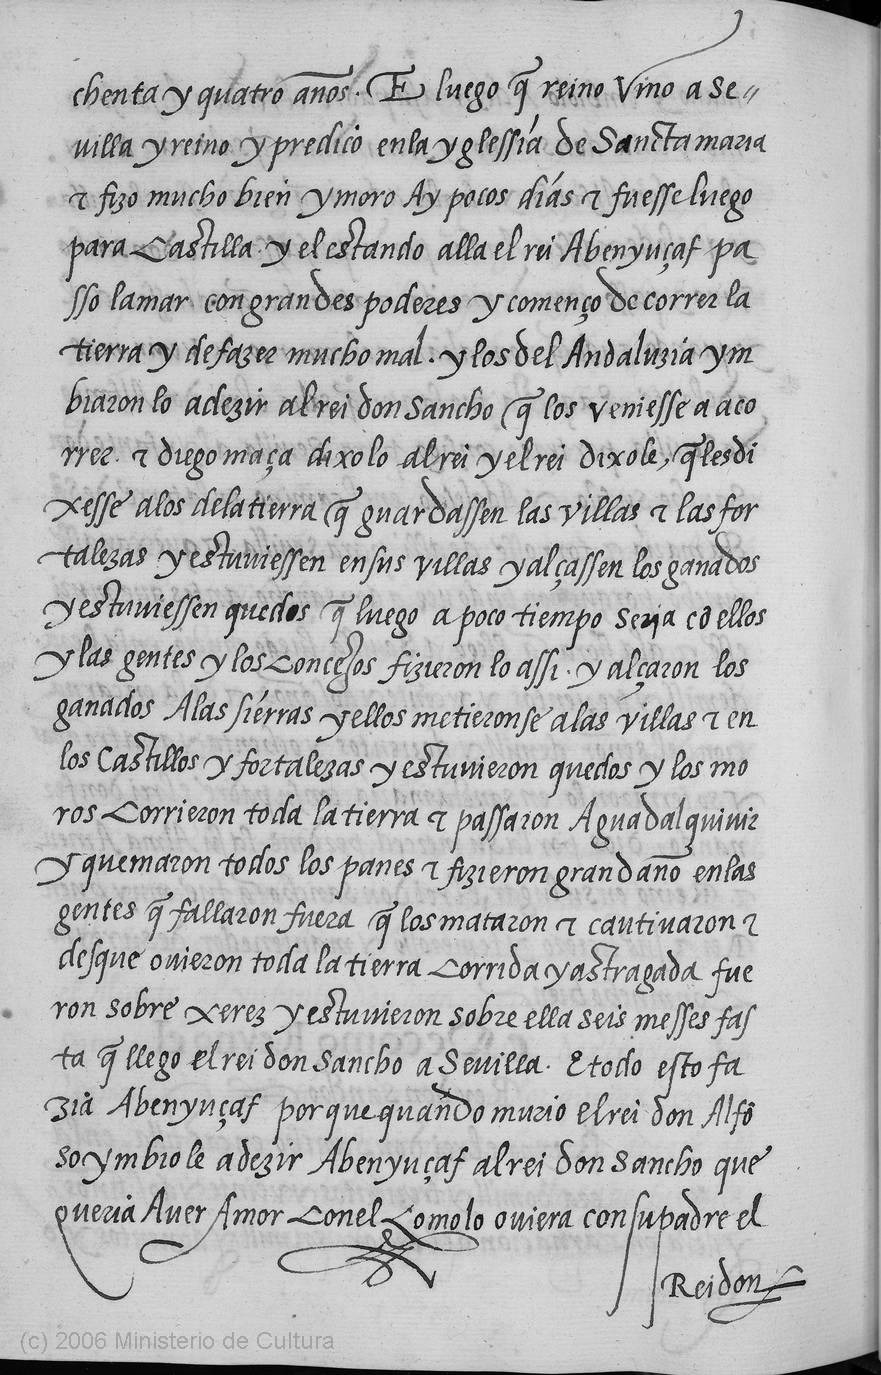 chenta y quatro años. E luego q̃ reino Vino a Se〃
uilla y reino y predicò en la yglessiá de Sancta maria
⁊ fizo mucho bien y moro Ay pocos días ⁊ fuesse luego
para Castilla. y el estando alla el rei Abenyuçaf pa
sso la mar con grandes poderes y començo de correr la
tierra y de fazer mucho mal. y los del Andaluzia ym
biaron lo a dezir al rei don Sancho q̃ los veniesse a aco
rrer. ⁊ diego maça dixolo al rei y el rei dixole, q̃ les di
xesse a los de la tierra q̃ guardassen las villas ⁊ las for
talezas y estuuiessen en sus villas y alçassen los ganados
y estuuiessen quedos q̃ luego a poco tiempo seria cõ ellos
y las gentes y los Concejos fizieron lo assi. y alçaron los
ganados A las siérras y ellos metieronse a las villas ⁊ en
los Castillos y fortalezas y estuuieron quedos y los mo
ros Corrieron toda la tierra ⁊ passaron Aguadalquiuir
y quemaron todos los panes ⁊ fizieron grand año en las
gentes q̃ fallaron fuera q̃ los mataron ⁊ cautiuaron ⁊
desque ouieron toda la tierra Corrida y astragada fue
ron sobre xerez y estuuieron sobre ella seis messes fas
ta q̃ llego el rei don Sancho a Seuilla. E todo esto fa
zia Abenyuçaf porque quando murio el rei don Alfõ
so ymbiole a dezir Abenyuçaf al rei don Sancho que
queria Auer Amor Con el Como lo ouiera con su padre el
Rei don
(c) 2006 Ministerio de Cultura